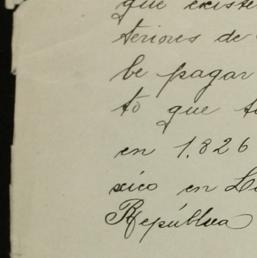 que existe
teriores de
be pagar
to que t
en 1.826
xico en L
República